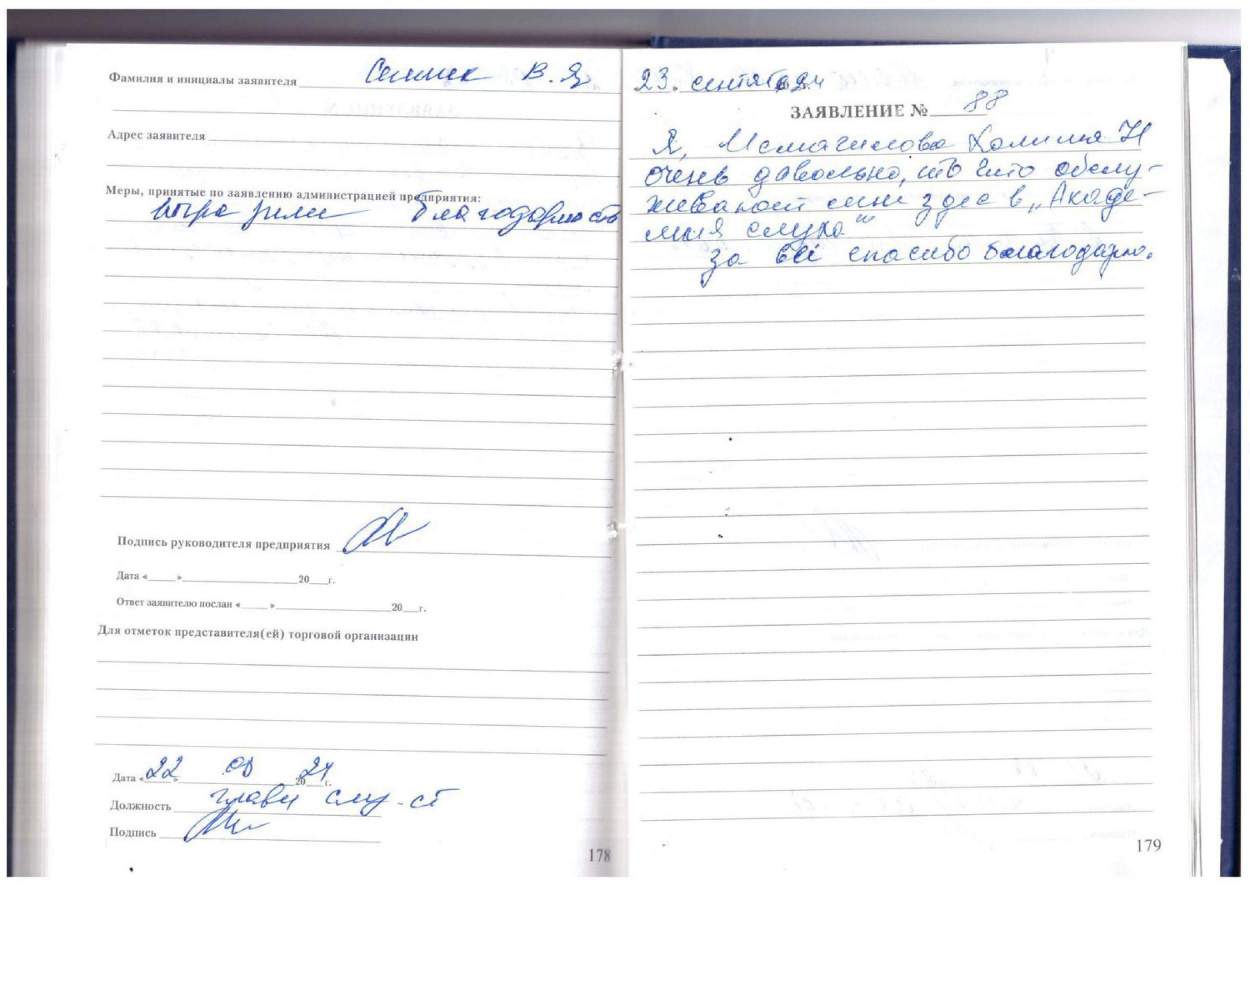 Фамилия и инициалы заявителя Семик В. Я.
Адрес заявителя
Меры, принятые по заявлению администрацией предприятия:
выразили благодарность
Подпись руководителя предприятия
Дата «____»____20__г.
Ответ заявителю послан «____»____20__г.
Для отметок представителя(ей) торговой организации
Дата «22» 09 2024г.
Должность главн слу-ст
Подпись
178
23. сентяб 24
ЗАЯВЛЕНИЕ № 88
Я, Исмагилова Халима Н
очень давольно, что обслу-
живают мне здес в „Акаде-
мия слуха"
за всё спасибо благодарю.
179